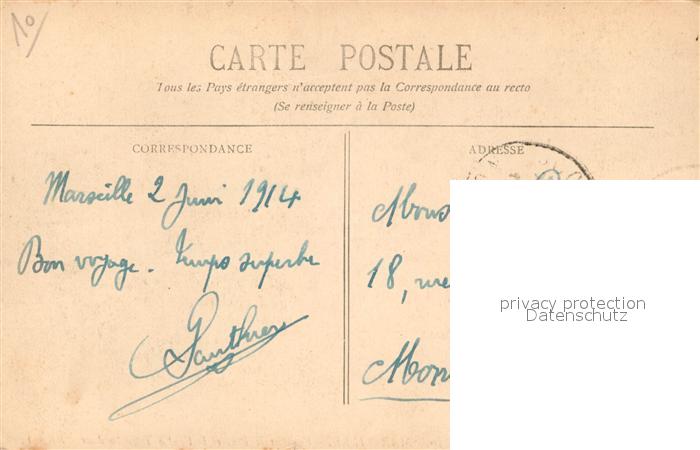 10
CARTE POSTALE
Tous les Pays étrangers n'acceptent pas la Correspondance au recto
(Se renseigner à la Poste)
CORRESPONDANCE
Marseille 2 Juin 1914
Bon voyage. Temps superbe
ADRESSE
18, rue
privacy protection
Datenschutz